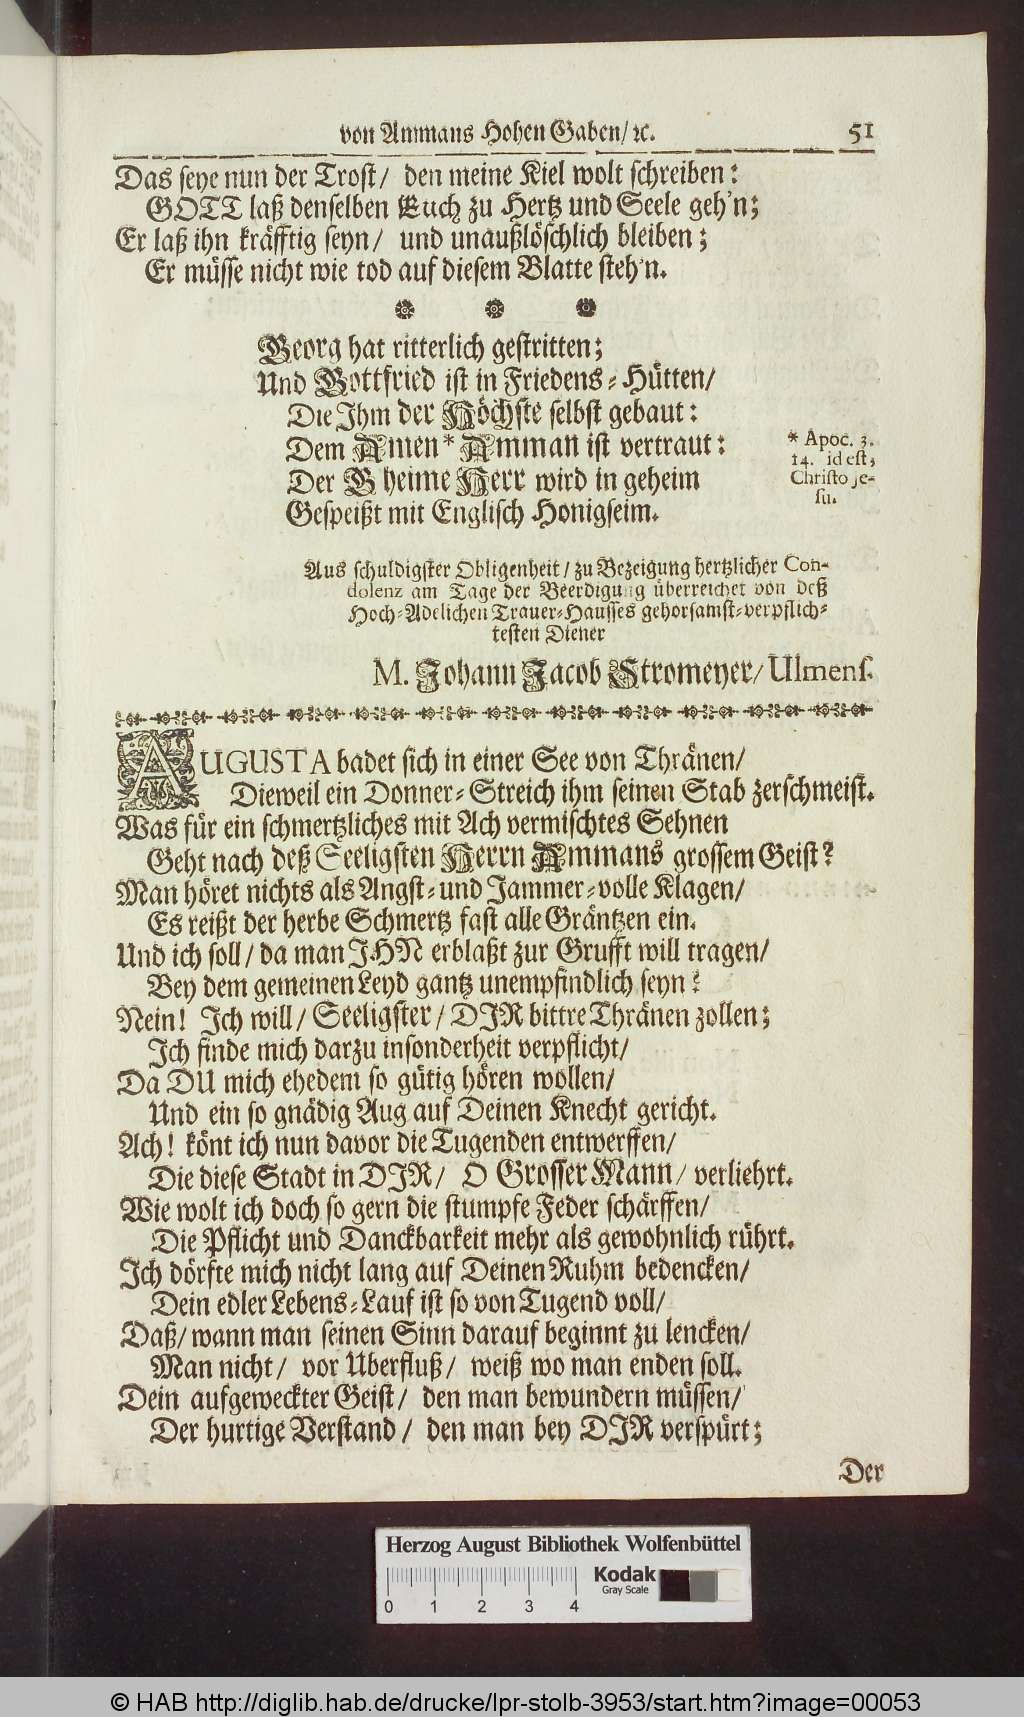 von Ammans Hohen Gaben/ ꝛc. 51
Das seye nun der Trost/ den meine Kiel wolt schreiben:
GOTT laß denselben Euch zu Hertz und Seele geh'n;
Er laß ihn kräfftig seyn/ und unaußlöschlich bleiben;
Er müsse nicht wie tod auf diesem Blatte steh'n.
Georg hat ritterlich gestritten;
Und Gottfried ist in Friedens-Hütten/
Die Ihm der Höchste selbst gebaut:
Dem Amen* Amman ist vertraut:
Der Gheime Herr wird in geheim
Gespeißt mit Englisch Honigseim.
* Apoc. 3.
14. id est,
Christo Je-
su.
Aus schuldigster Obligenheit/ zu Bezeigung hertzlicher Con-
dolenz am Tage der Beerdigung überreichet von deß
Hoch-Adelichen Trauer-Hausses gehorsamst-verpflich-
testen Diener
M. Johann Jacob Stromeyer/ Ulmens.
AUGUSTA badet sich in einer See von Thränen/
Dieweil ein Donner-Streich ihm seinen Stab zerschmeist.
Was für ein schmertzliches mit Ach vermischtes Sehnen
Geht nach deß Seeligsten Herrn Ammans grossem Geist?
Man höret nichts als Angst- und Jammer-volle Klagen/
Es reißt der herbe Schmertz fast alle Gräntzen ein.
Und ich soll/ da man IHN erblaßt zur Grufft will tragen/
Bey dem gemeinen Leyd gantz unempfindlich seyn?
Nein! Ich will/ Seeligster/ DIR bittre Thränen zollen;
Ich finde mich darzu insonderheit verpflicht/
Da DU mich ehedem so gütig hören wollen/
Und ein so gnädig Aug auf Deinen Knecht gericht.
Ach! könt ich nun davor die Tugenden entwerffen/
Die diese Stadt in DIR/ O Grosser Mann/ verliehrt.
Wie wolt ich doch so gern die stumpfe Feder schärffen/
Die Pflicht und Danckbarkeit mehr als gewohnlich rührt.
Ich dörfte mich nicht lang auf Deinen Ruhm bedencken/
Dein edler Lebens-Lauf ist so von Tugend voll/
Daß/ wann man seinen Sinn darauf beginnt zu lencken/
Man nicht/ vor Uberfluß/ weiß wo man enden soll.
Dein aufgeweckter Geist/ den man bewundern müssen/
Der hurtige Verstand/ den man bey DIR verspürt;
Der
Herzog August Bibliothek Wolfenbüttel
Kodak
Gray Scale
0 1 2 3 4
© HAB http://diglib.hab.de/drucke/lpr-stolb-3953/start.htm?image=00053